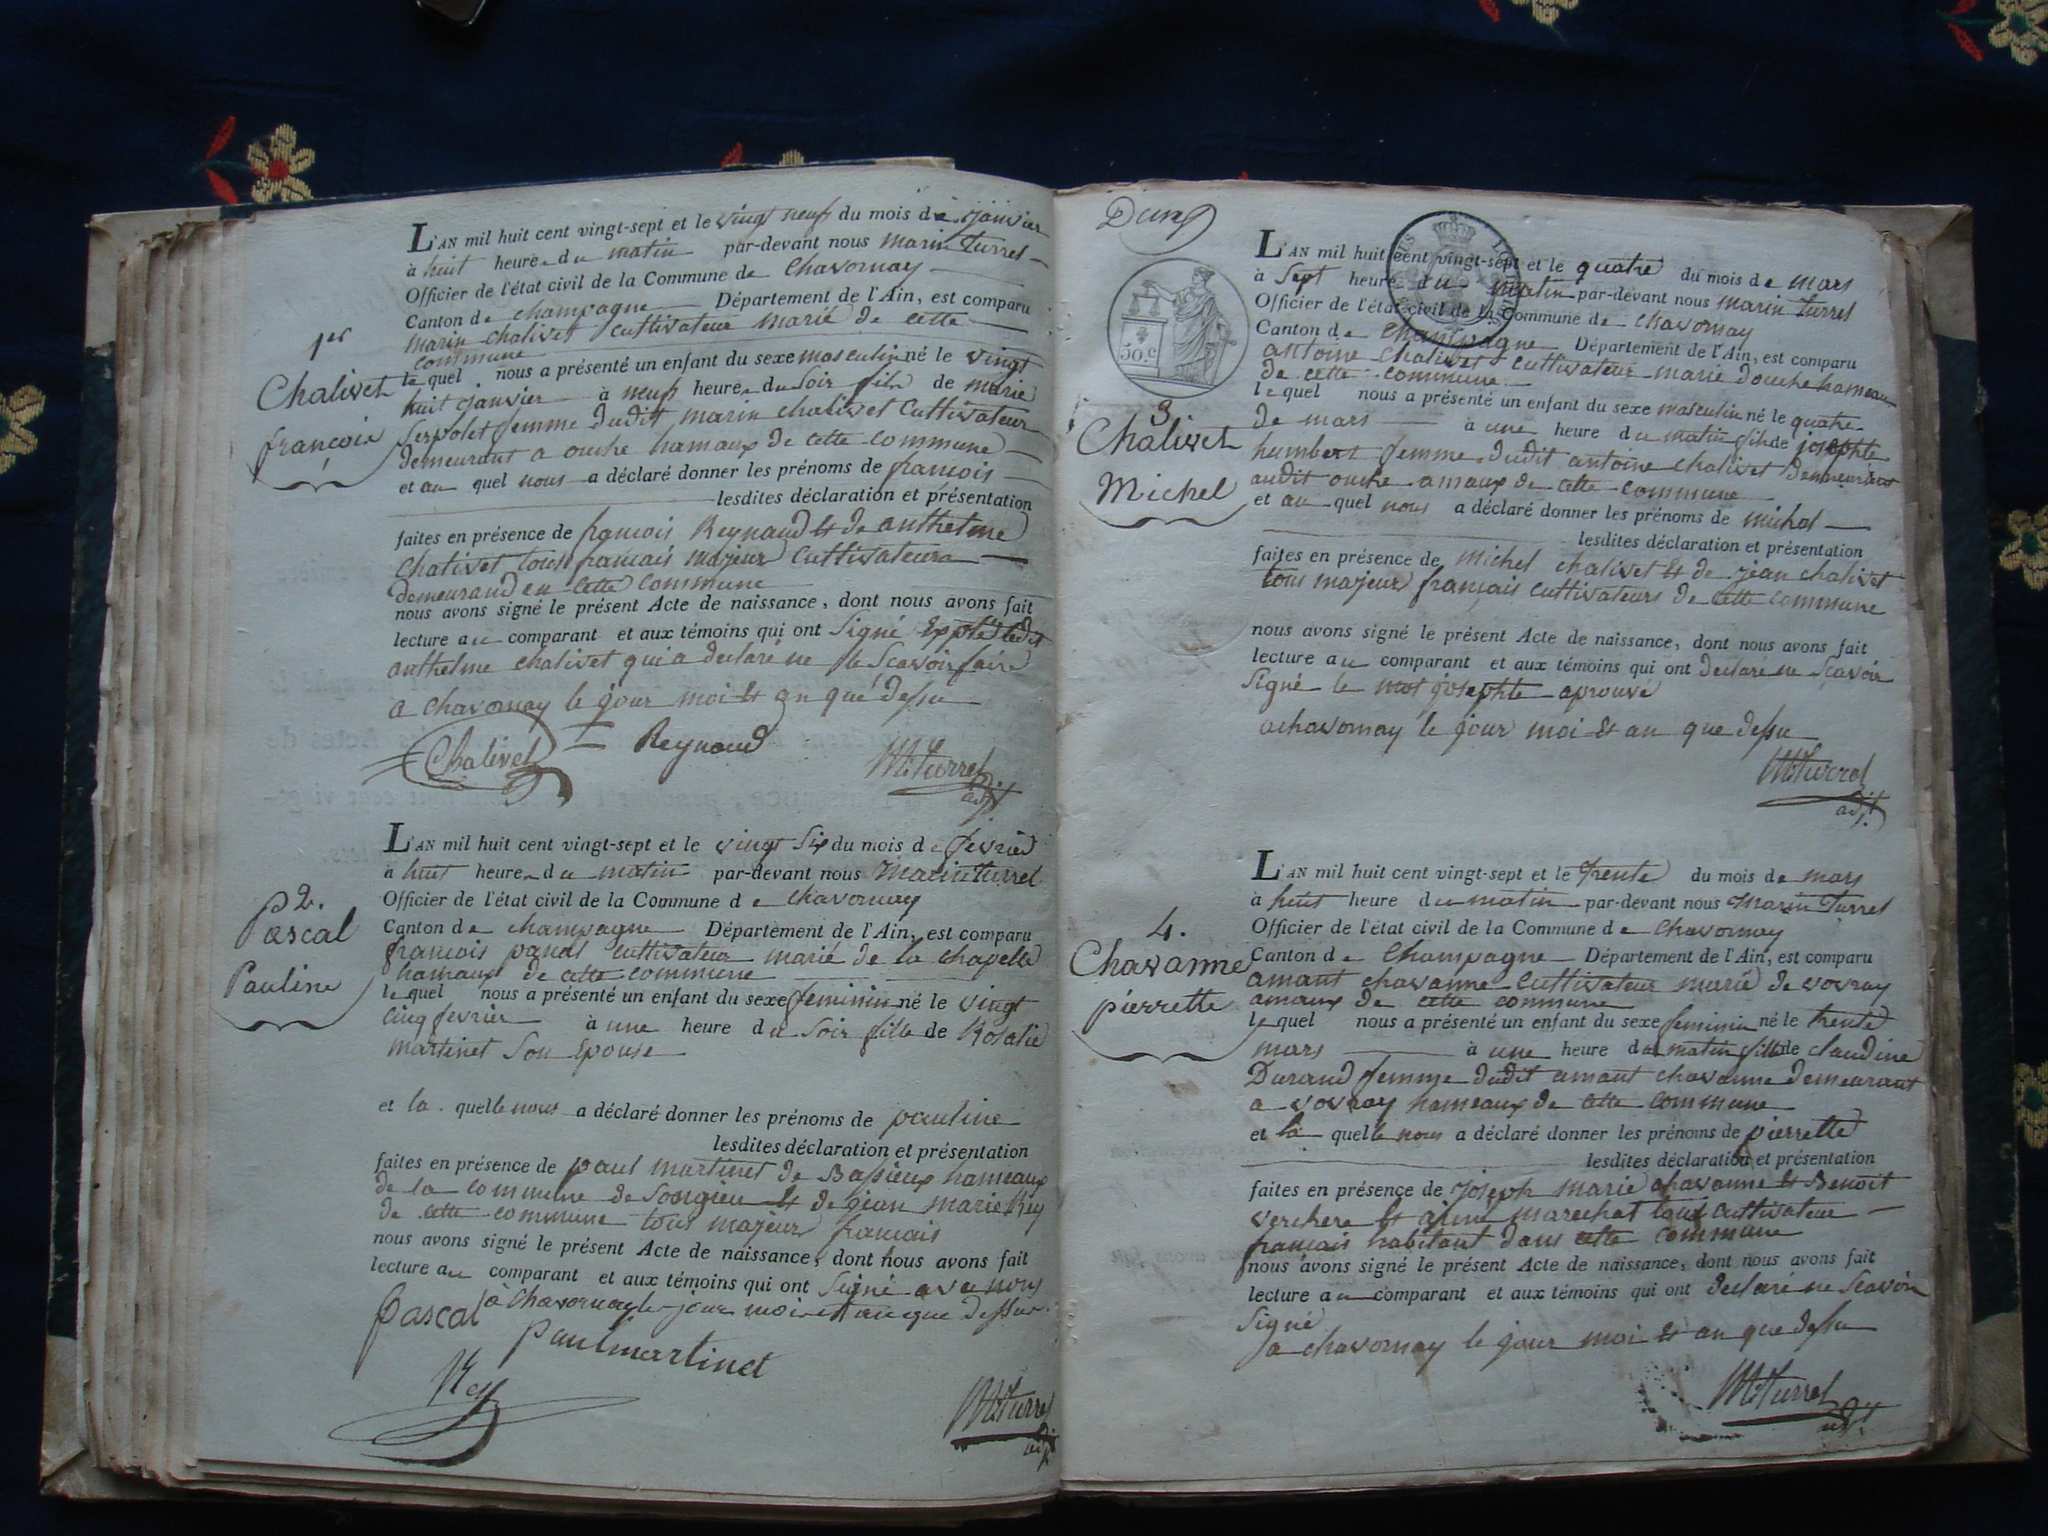 L'AN mil huit cent vingt-sept et le vingt neuf du mois de janvier
à huit heure du matin par-devant nous marin Turrel
Officier de l'état civil de la Commune de Chavornay
Canton de champagne Département de l'Ain, est comparu
marin chalivet cultivateur marié de cette
commune
1er
Chalivet
françois
lequel nous a présenté un enfant du sexe masculin né le vingt
huit janvier à neuf heure du soir fils de marie
Servolet femme dudit marin chalivet cultivateur
demeurant a ouche hamaux de cette commune
et au quel nous a déclaré donner les prénoms de françois
lesdites déclaration et présentation
faites en présence de francois Reynaud et de anthelme
chalivet tous francais majeur cultivateurs
demeurand en cette commune
nous avons signé le présent Acte de naissance, dont nous avons fait
lecture au comparant et aux témoins qui ont signé ledit
anthelme chalivet qui a déclaré ne le scavoir faire
a chavornay le jour moi et an que dessu
Chalivet Reynaud M. Turrel
adjt
L'AN mil huit cent vingt-sept et le vingt six du mois de fevried
à huit heure du matin par-devant nous Marin Turrel
Officier de l'état civil de la Commune de Chavornay
Canton de champagne Département de l'Ain, est comparu
francois cultivateur marié de la chapelle
hamaux de cette commune
2.
Pascal
Pauline
lequel nous a présenté un enfant du sexe feminin né le vingt
cinq fevrier à une heure du soir fille de Rosalie
martinet son Epouse
et la quelle nous a déclaré donner les prénoms de pauline
lesdites déclaration et présentation
faites en présence de paul martinet de Bassieux hameaux
de la commune de Songieu et de jean marie Rey
de cette commune tous majeur francais
nous avons signé le présent Acte de naissance, dont nous avons fait
lecture au comparant et aux témoins qui ont signé avec nous
à Chavornay le jour moi et an que dessus
Pascal paul martinet
Rey
M. Turrel
adjt
50.c
L'AN mil huit cent vingt-sept et le quatre du mois de mars
à Sept heure du matin par-devant nous marin Turrel
Officier de l'état civil de la Commune de chavornay
Canton de Champagne Département de l'Ain, est comparu
antoine chalivet cultivateur marié douche hameau
de cette commune
3
Chalivet
Michel
lequel nous a présenté un enfant du sexe masculin né le quatre
de mars à une heure du matin fils de josephte
humbert femme dudit antoine chalivet demeurant
audit ouche amaux de cette commune
et au quel nous a déclaré donner les prénoms de michel
lesdites déclaration et présentation
faites en présence de michel chalivet et de jean chalivet
tous majeur français cultivateurs de cette commune
nous avons signé le présent Acte de naissance, dont nous avons fait
lecture au comparant et aux témoins qui ont declaré ne scavoir
signé le mot josephte aprouvé
a chavornay le jour moi et an que dessu
M. Turrel
adjt
L'AN mil huit cent vingt-sept et le trente du mois de mars
à huit heure du matin par-devant nous Marin Turrel
Officier de l'état civil de la Commune de Chavornay
Canton de Champagne Département de l'Ain, est comparu
amant chavanne cultivateur marié de vovray
amaux de cette commune
4.
Chavanne
pierrette
lequel nous a présenté un enfant du sexe feminin né le trente
mars à une heure du matin fille de claudine
Durand femme dudit amant chavanne demeurant
a vovray hameaux de cette commune
et la quelle nous a déclaré donner les prénoms de pierrette
lesdites déclaration et présentation
faites en présence de joseph marie chavanne et Benoit
verchere et marechal tous cultivateur
francais habitant dans cette commune
nous avons signé le présent Acte de naissance, dont nous avons fait
lecture au comparant et aux témoins qui ont declaré ne scavoir
signé
a chavornay le jour moi et an que dessu
M. Turrel
adjt